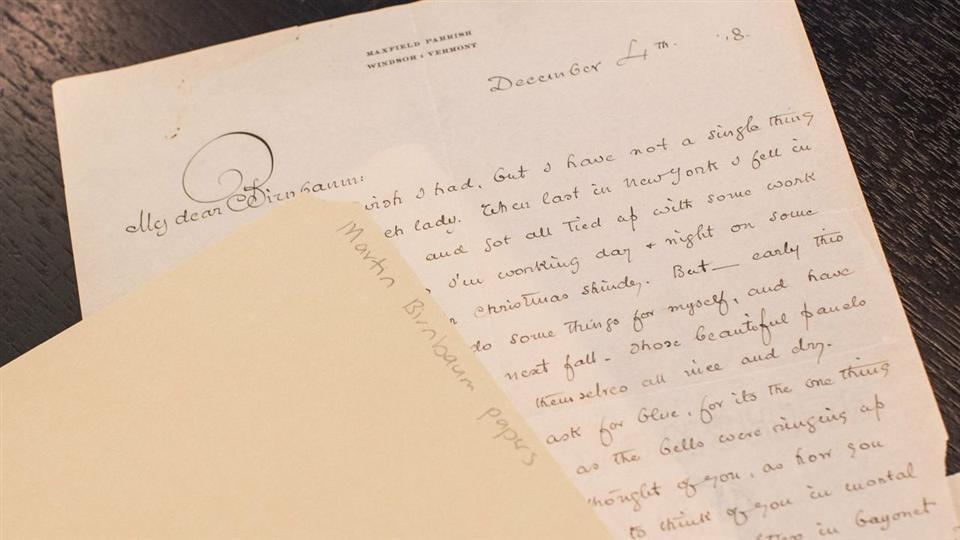 MAXFIELD PARRISH
WINDSOR : VERMONT
December 4th '18.
My dear Birnbaum:
wish I had, but I have not a single thing
lady. When last in New York I fell in
and got all tied up with some work
I'm working day + night on some
Christmas shindy. But — early this
do some things for myself, and have
next fall - Those beautiful panels
themselves all nice and dry.
ask for blue, for its the one thing
as the bells were ringing up
thought of you, as how you
to think of you in mortal
in bayonet
Martin Birnbaum papers